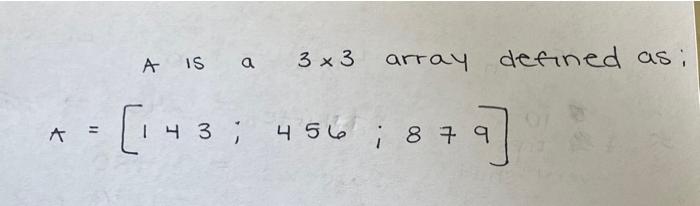 A is a 3x3 array defined as;
A = [1 4 3 ; 4 5 6 ; 8 7 9]